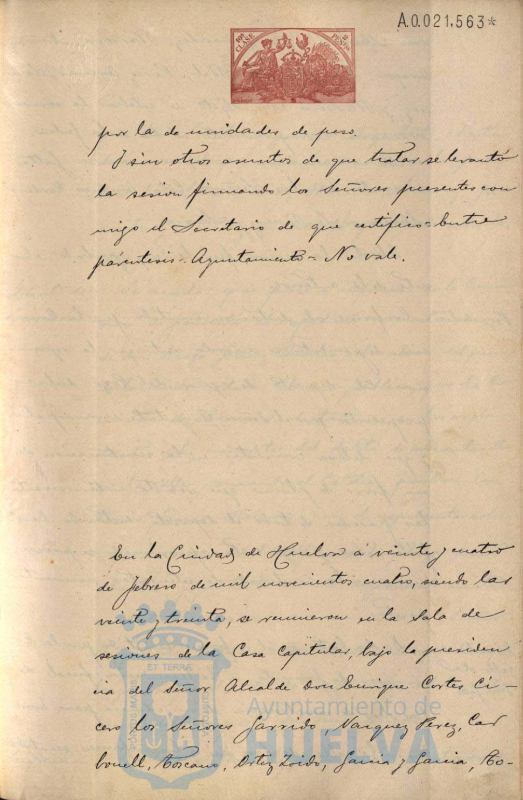 A.0.021,563*
10ª CLASE
PESETAS
por la de unidades de peso.
Y sin otros asuntos de que tratar se levantó
la sesion firmando los Señores presentes con
migo el Secretario de que certifico=Entre
paréntesis=Ayuntamiento=No vale.
En la Ciudad de Huelva a veinte y cuatro
de febrero de mil novecientos cuatro, siendo las
veinte y treinta, se reunieron en la Sala de
sesiones de la Casa Capitular, bajo la presiden
cia del Señor Alcalde Don Enrique Cortes Ci-
cero los Señores Garrido, Vazquez Perez, Car
bonell, Toscano, Ortiz Zoido, Garcia y Garcia, Co-
Ayuntamiento de
HUELVA